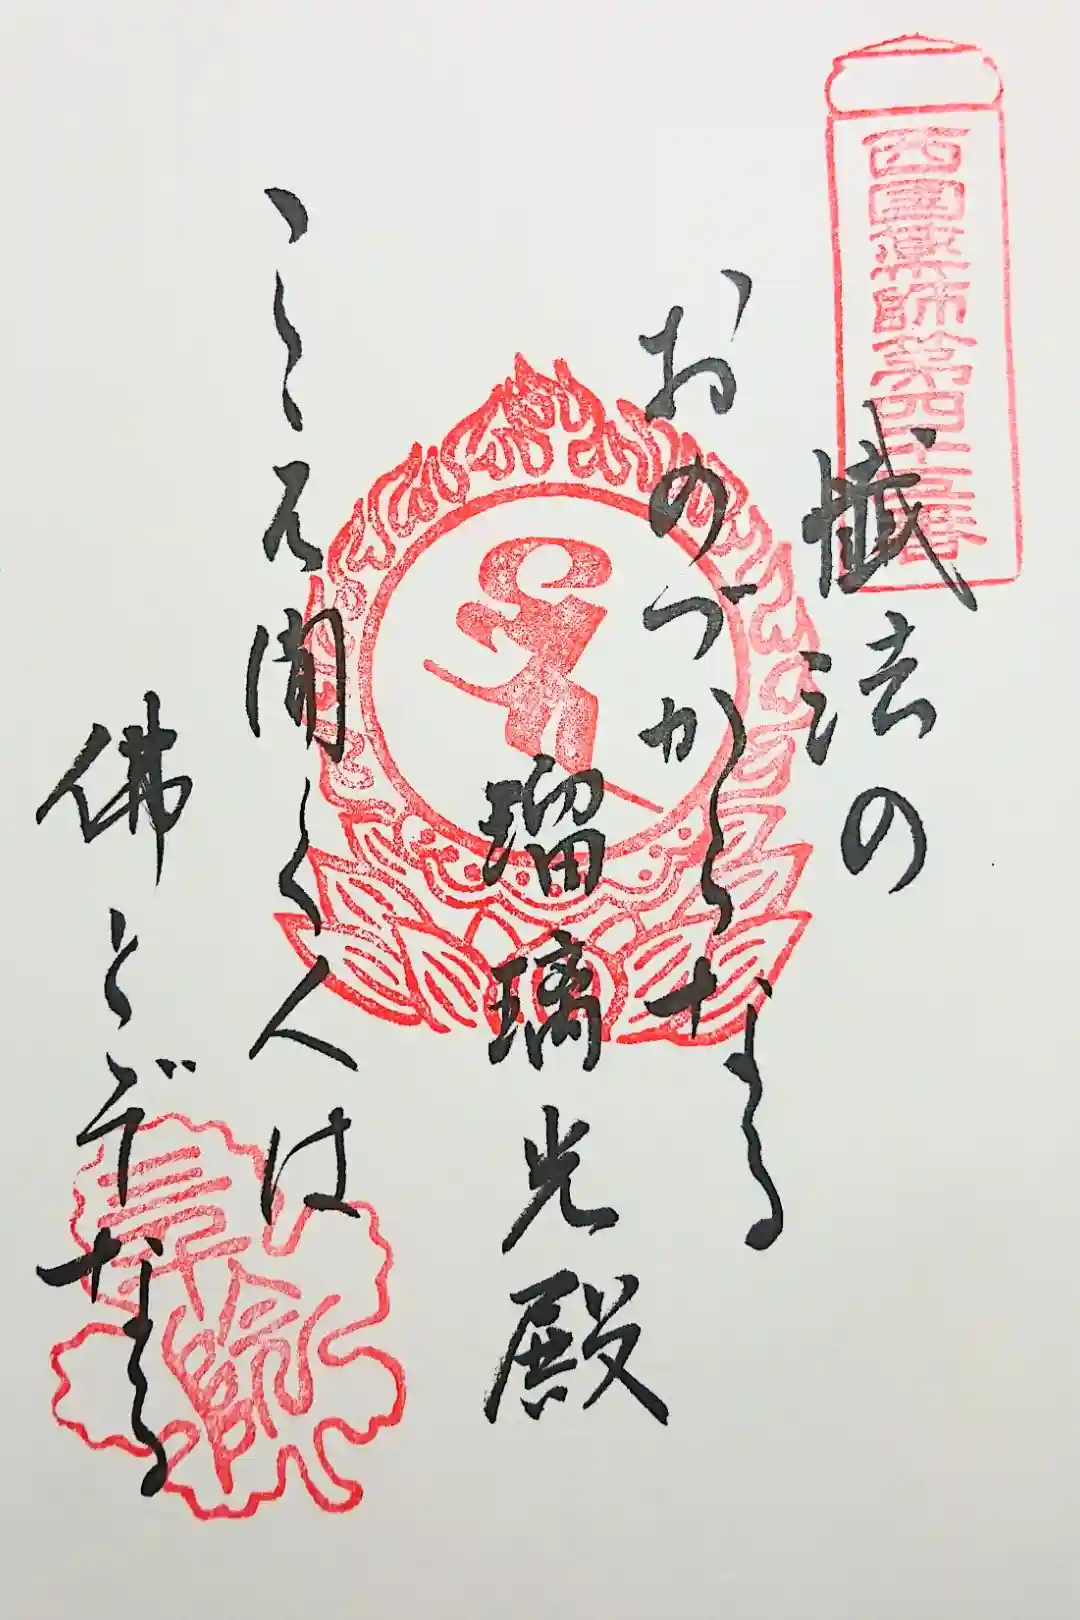 西國薬師第四十五番
懺法の
おのづからなる
瑠璃光殿
こえ聞く人は
佛とぞなる